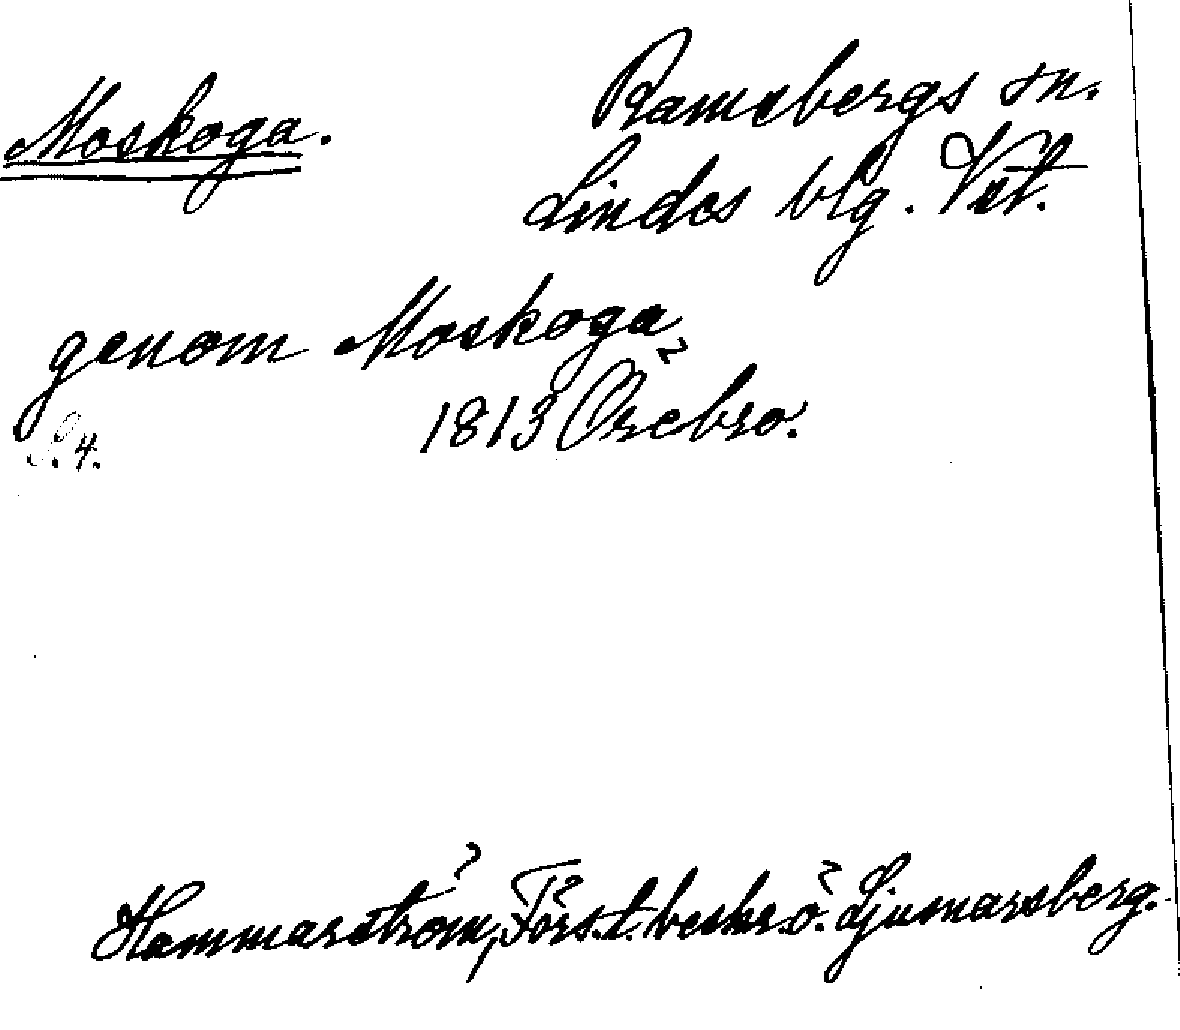 Moskoga.
Ramsbergs sn.
Lindes blg. Vstl.
genom Moskoga
1813 Örebro.
S. 4.
Hammarström, Förs. t. beskr. ö. Ljusnarsberg.